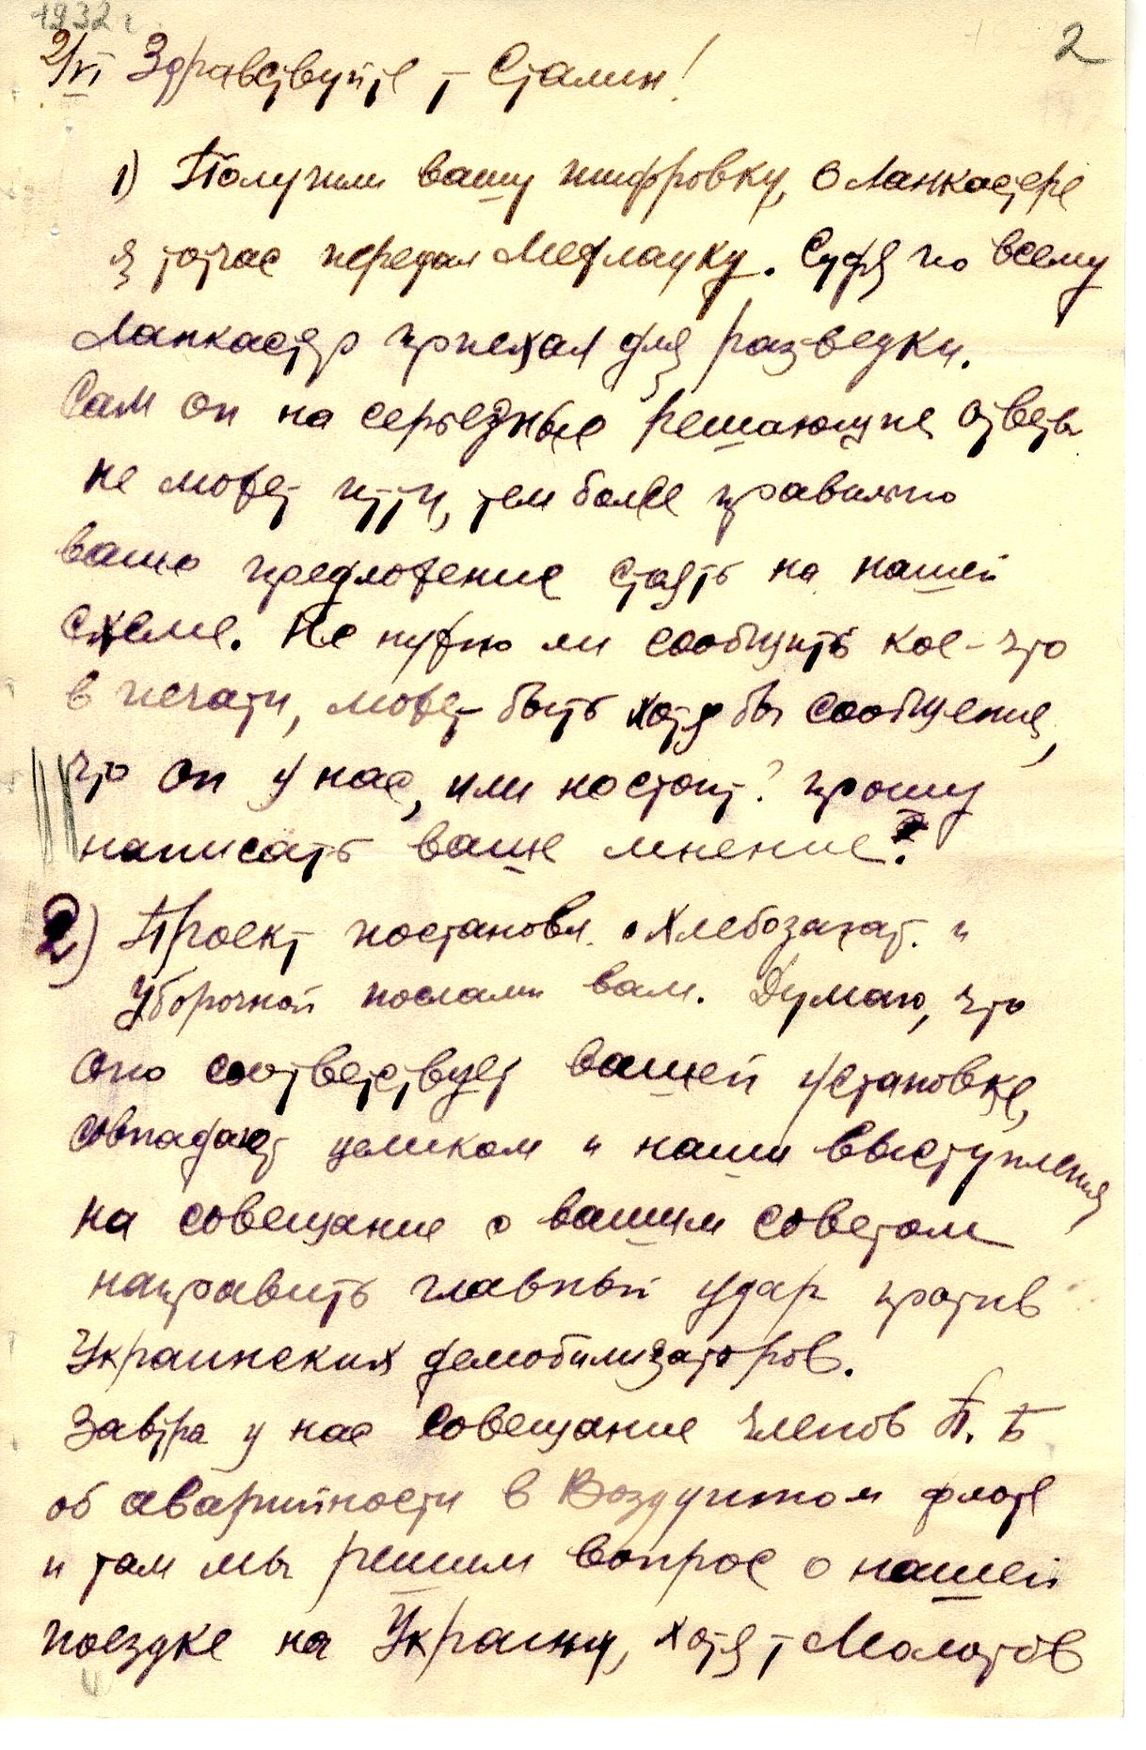 1932 г.
2
2/VI Здравствуйте, т Сталин!
1) Получили вашу шифровку, о Ланкастере
я тотчас передал Межлауку. Судя по всему
Ланкастер приехал для разведки.
Сам он на серьезные решающие ответы
не может итти, тем более правильно
ваше предложение стоять на нашей
схеме. Не нужно ли сообщить кое-что
в печати, может быть хотя бы сообщение,
что он у нас, или не стоит? прошу
написать ваше мнение?
2) Проект постановл. о хлебозагот. и
Уборочной послали вам. Думаю, что
оно соответствует вашей установке,
совпадают целиком и наши выступления
на совещание с вашим советом
направить главный удар против
Украинских демобилизаторов.
Завтра у нас совещание членов П. Б
об аварийности в Воздушном флоте
и там мы решим вопрос о нашей
поездке на Украину, хотя т Молотов